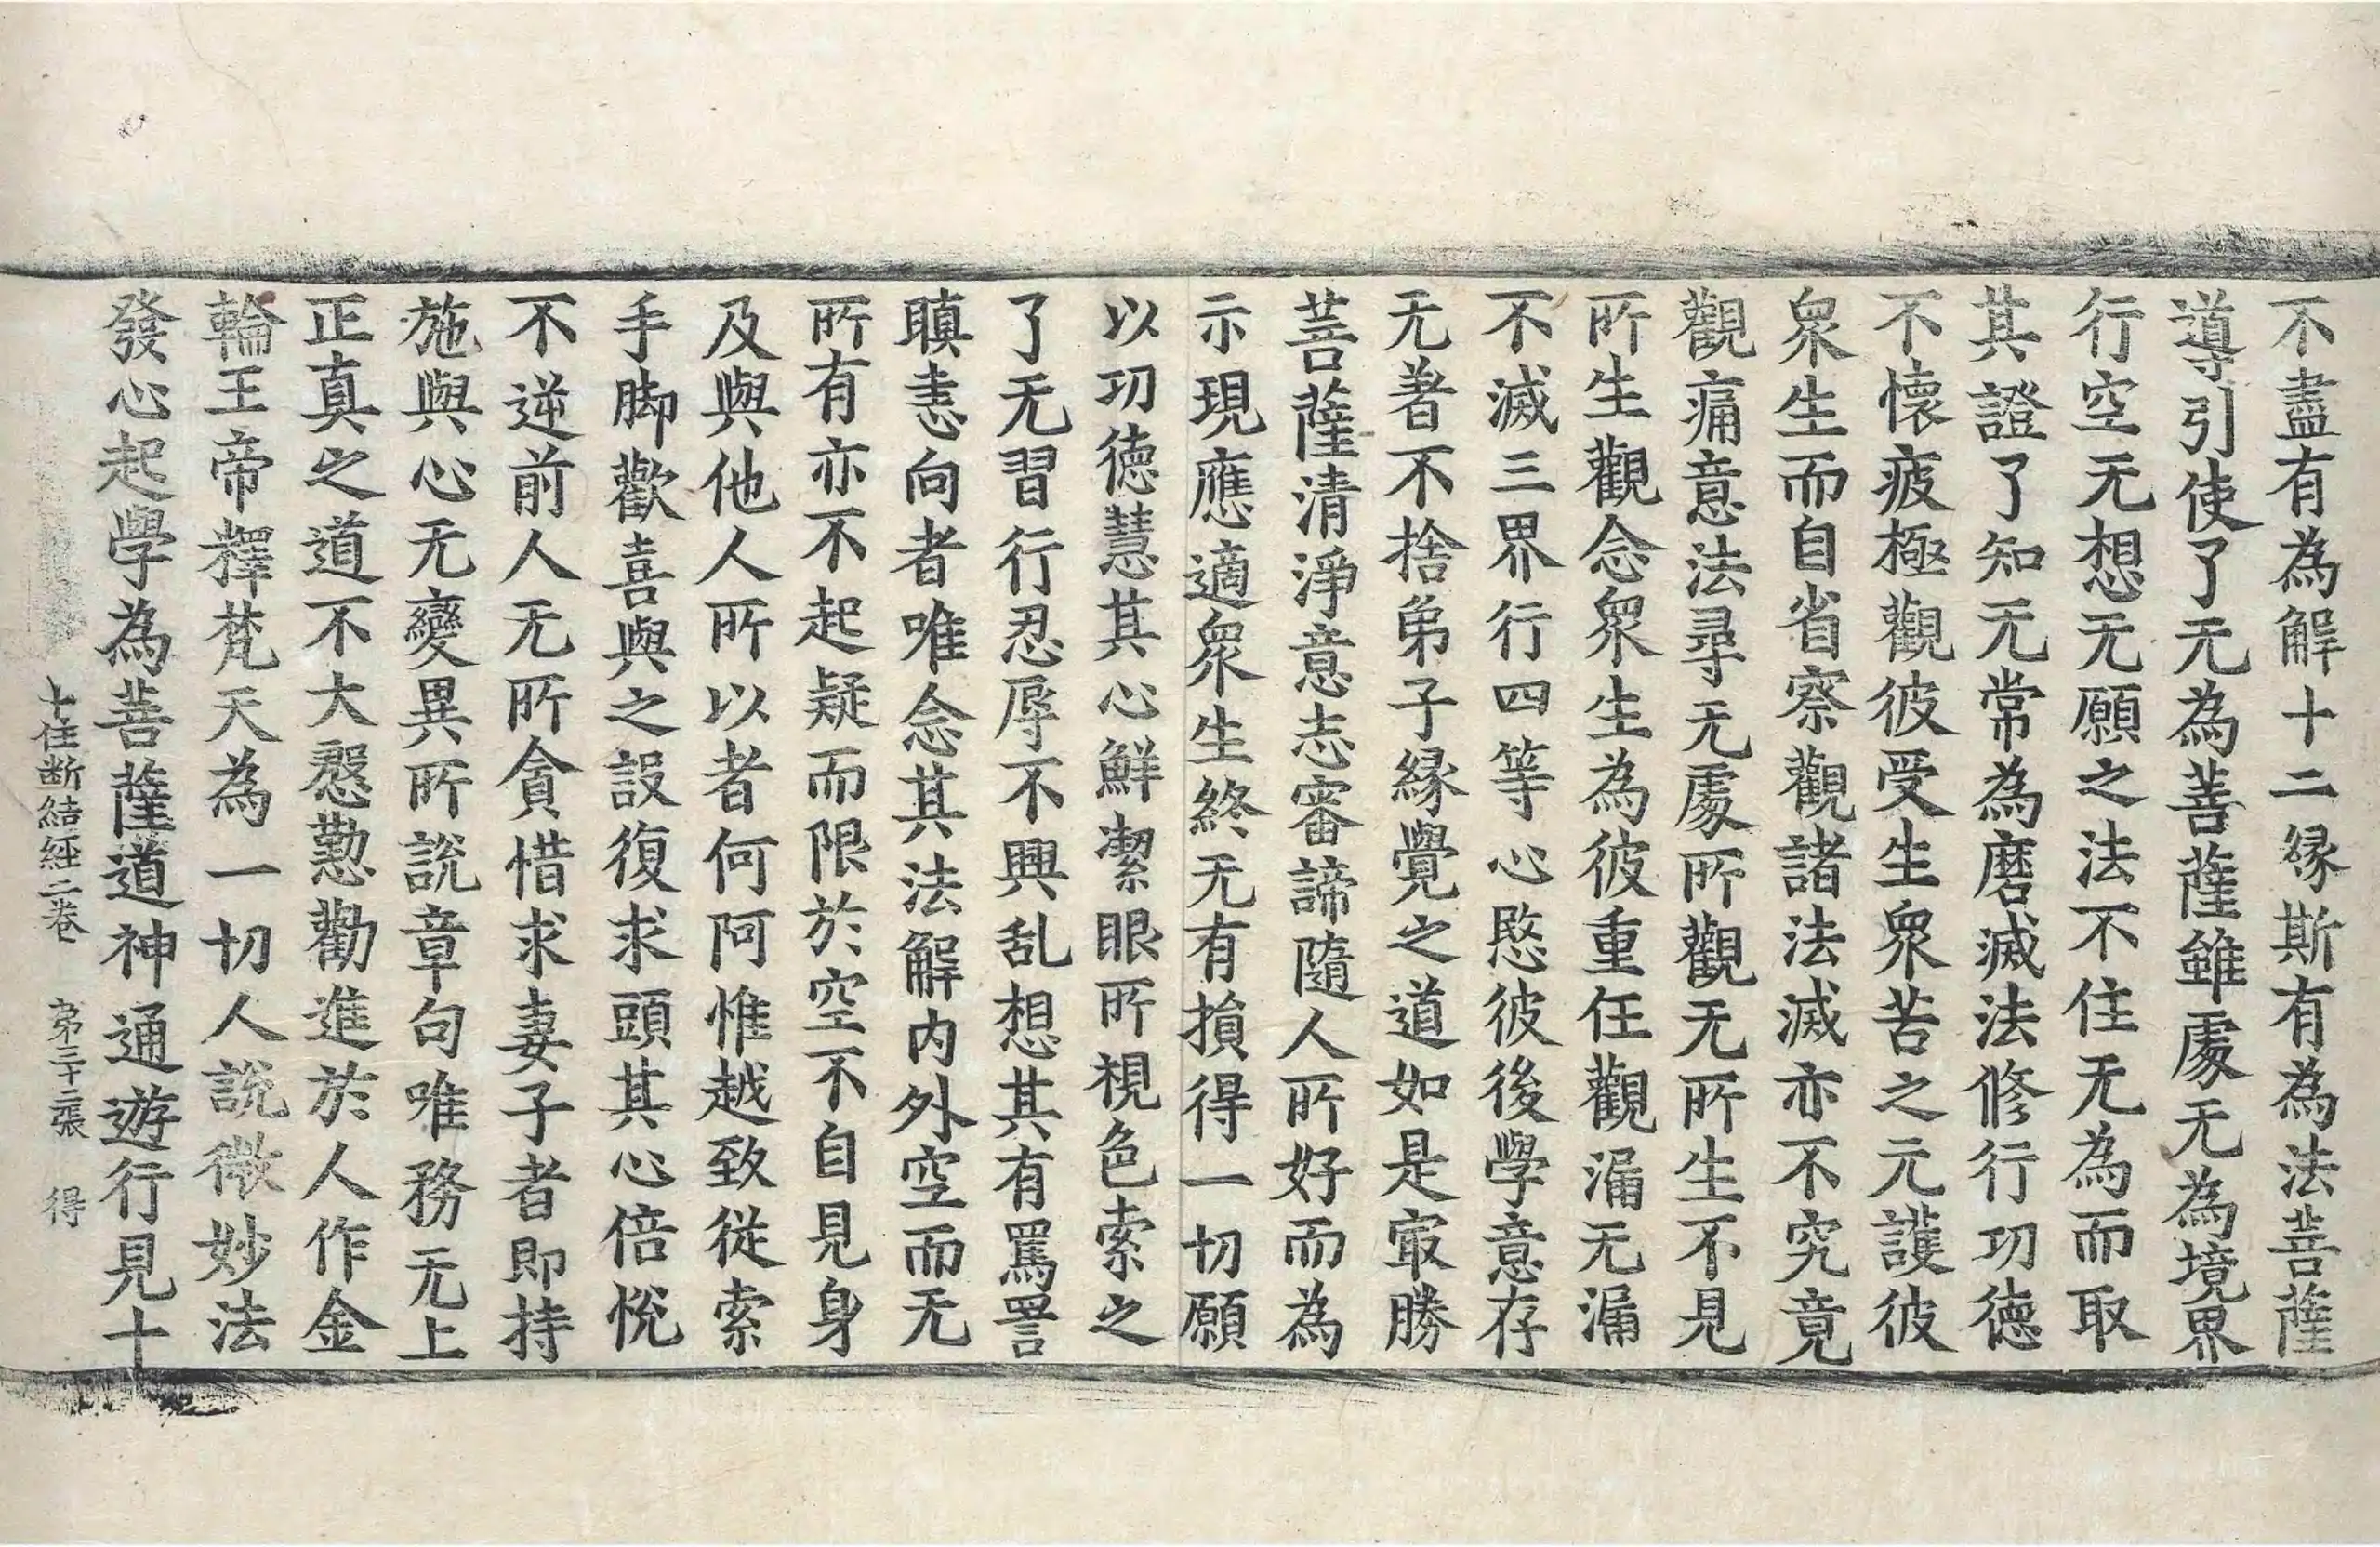 不盡有為解十二緣斯有為法菩薩
導引使了无為菩薩雖處无為境界
行空无想无願之法不住无為而取
其證了知无常為磨滅法修行功德
不懷疲極觀彼受生衆苦之元護彼
衆生而自省察觀諸法滅亦不究竟
觀痛意法尋无處所觀无所生不見
所生觀念衆生為彼重任觀漏无漏
不滅三界行四等心愍彼後學意存
无著不捨弟子緣覺之道如是㝡勝
菩薩清淨意志審諦隨人所好而為
示現應適衆生終无有損得一切願
以功德慧其心鮮潔眼所視色索之
了无習行忍辱不興乱想其有罵詈
瞋恚向者唯念其法解内外空而无
所有亦不起疑而限於空不自見身
及與他人所以者何阿惟越致從索
手脚歡喜與之設復求頭其心倍悅
不逆前人无所貪惜求妻子者即持
施與心无變異所說章句唯務无上
正真之道不大慇懃勸進於人作金
輪王帝釋梵天為一切人說微妙法
發心起學為菩薩道神通遊行見十
十住断結經二卷 第三十二張 得